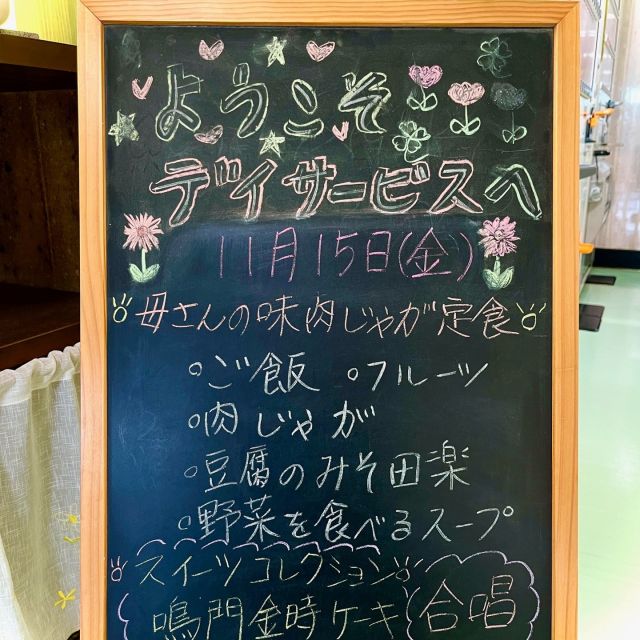 ようこそ
デイサービスへ
11月15日(金)
母さんの味肉じゃが定食
○ご飯 ○フルーツ
○肉じゃが
○豆腐のみそ田楽
○野菜を食べるスープ
スイーツコレクション
鳴門金時ケーキ 合唱